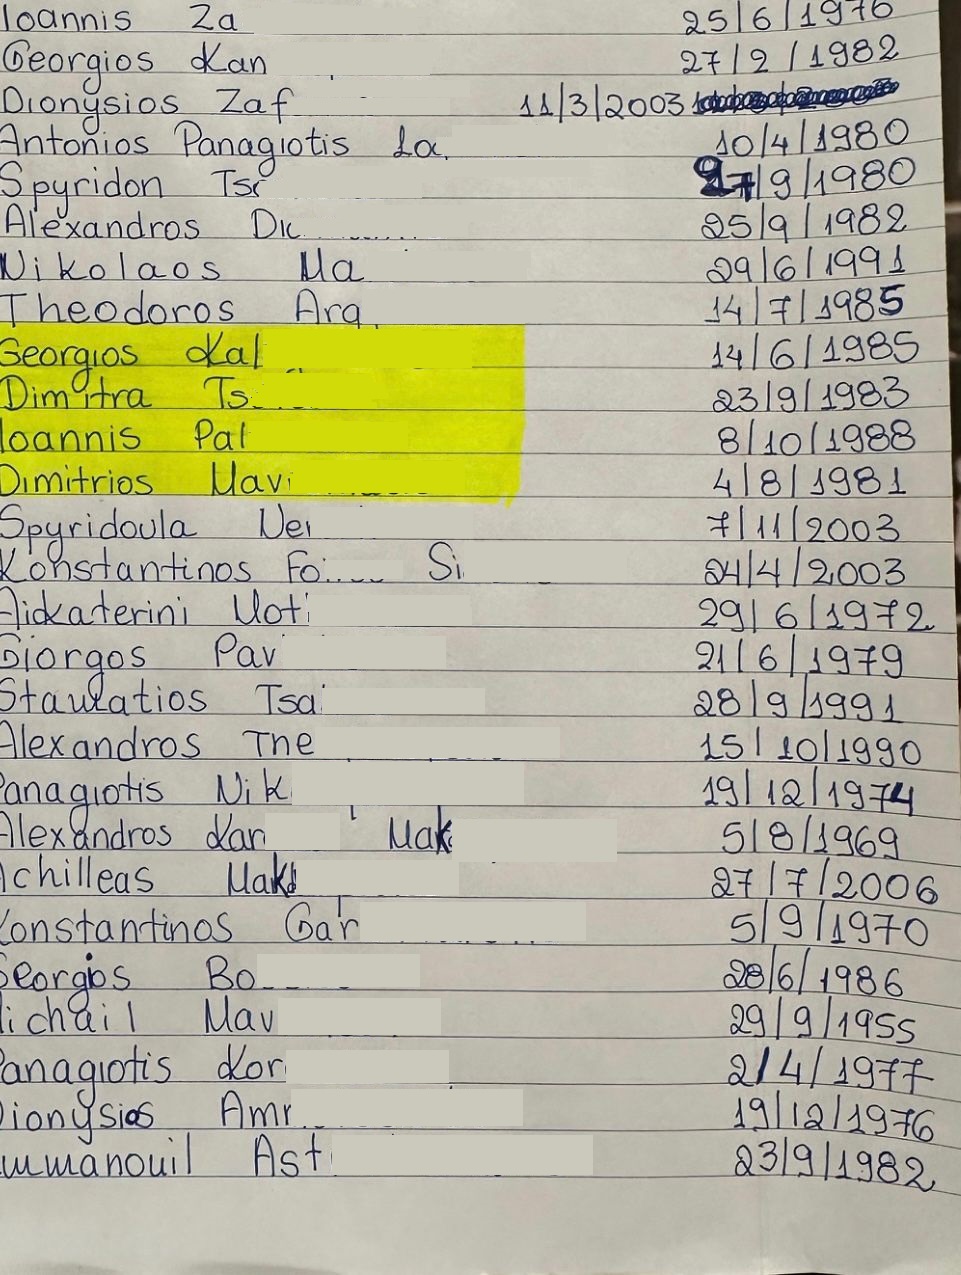 Ioannis Za 25/6/1976
Georgios Kan 27/2/1982
Dionysios Zaf 11/3/2003
Antonios Panagiotis La 10/4/1980
Spyridon Tsi 27/9/1980
Alexandros Dic 25/9/1982
Nikolaos Ma 29/6/1991
Theodoros Arg 14/7/1985
Georgios Kal 14/6/1985
Dimitra Ts 23/9/1983
Ioannis Pal 8/10/1988
Dimitrios Mavi 4/8/1981
Spyridoula Nei 7/11/2003
Konstantinos Fo Si 24/4/2003
Aikaterini Moti 29/6/1972
Giorgos Pav 21/6/1979
Tsai 28/9/1991
Alexandros The 15/10/1990
Panagiotis Nik 19/12/1974
Alexandros Kan Mak 5/8/1969
Achilleas Mak 27/7/2006
Konstantinos Gar 5/9/1970
Georgios Bo 28/6/1986
Michail Mav 29/9/1955
Panagiotis Kor 2/4/1977
Dionysios Amr 19/12/1976
Emmanouil Ast 23/9/1982